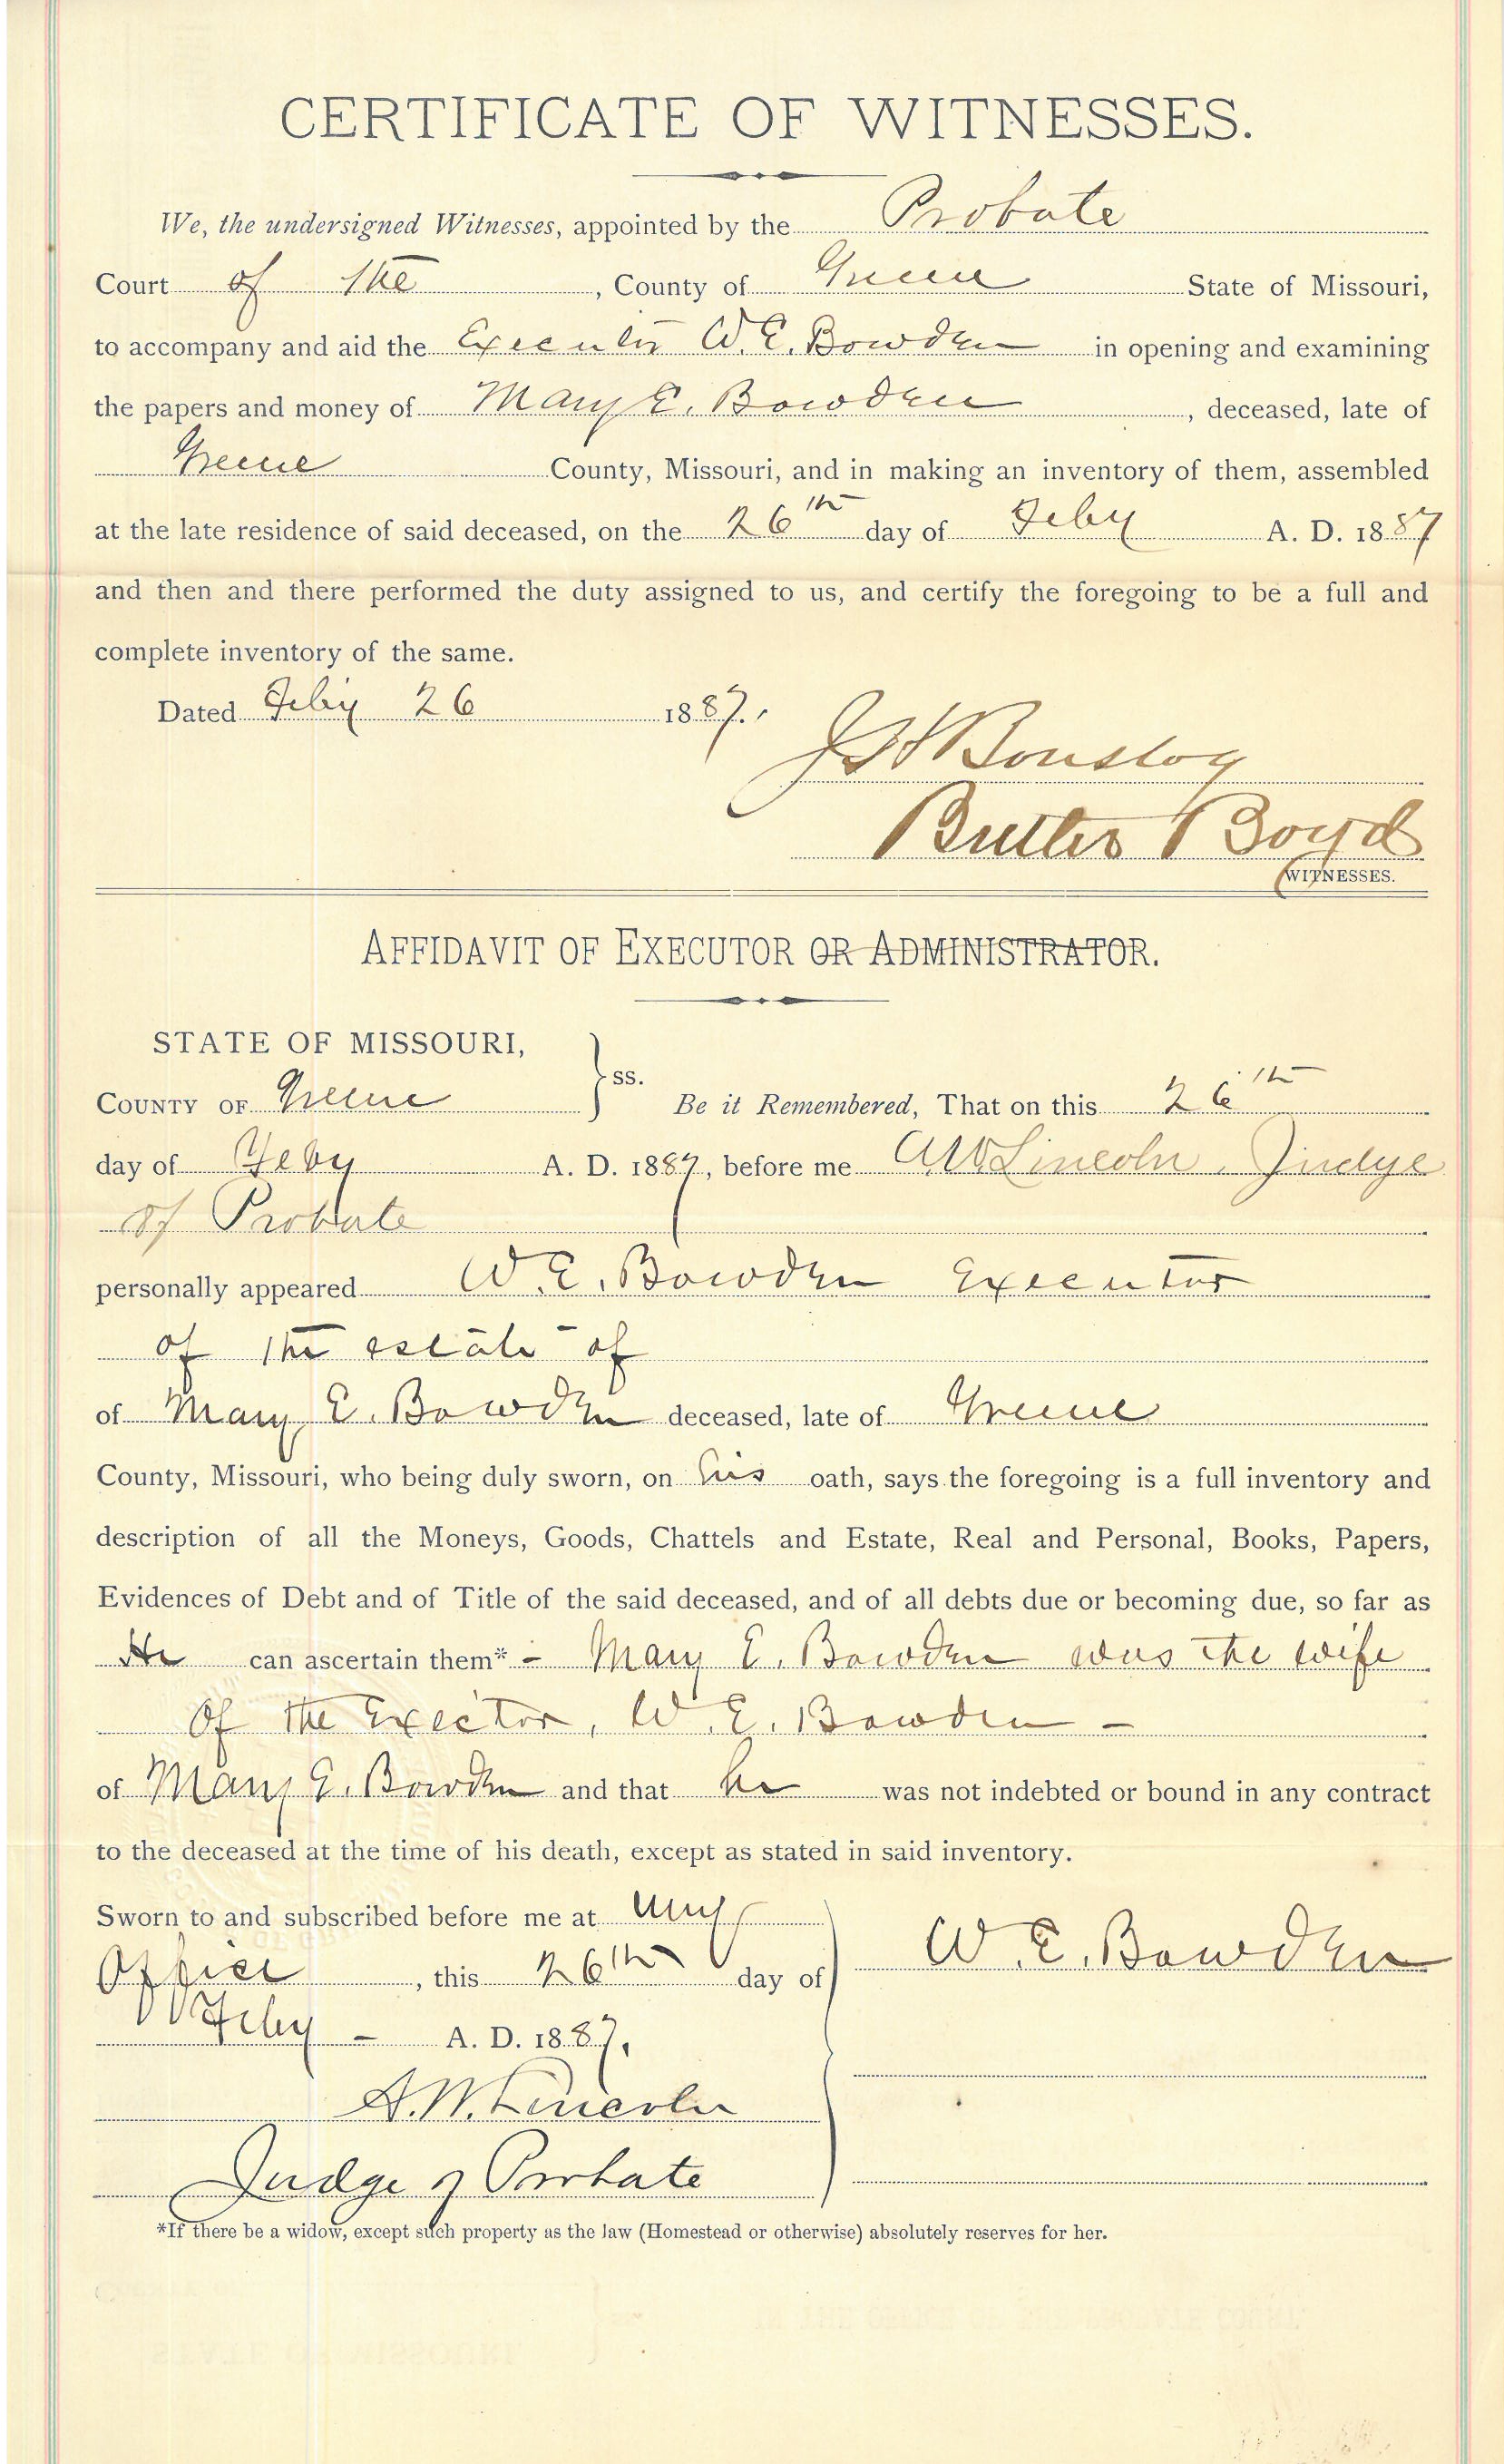 CERTIFICATE OF WITNESSES.
We, the undersigned Witnesses, appointed by the Probate
Court of the , County of Greene State of Missouri,
to accompany and aid the Executor W. E. Bowden in opening and examining
the papers and money of Mary E. Bowden , deceased, late of
Greene County, Missouri, and in making an inventory of them, assembled
at the late residence of said deceased, on the 26th day of Feby A. D. 1887
and then and there performed the duty assigned to us, and certify the foregoing to be a full and
complete inventory of the same.
Dated Feby 26 1887.
Bouslog
Butler Boyd
WITNESSES.
AFFIDAVIT OF EXECUTOR OR ADMINISTRATOR.
STATE OF MISSOURI,
COUNTY OF Greene } ss. Be it Remembered, That on this 26th
day of Feby A. D. 1887, before me A W Lincoln, Judge
of Probate
personally appeared W. E. Bowden Executor
of the estate of
of Mary E. Bowden deceased, late of Greene
County, Missouri, who being duly sworn, on his oath, says the foregoing is a full inventory and
description of all the Moneys, Goods, Chattels and Estate, Real and Personal, Books, Papers,
Evidences of Debt and of Title of the said deceased, and of all debts due or becoming due, so far as
He can ascertain them* - Mary E. Bowden was the wife
of the Exector, W. E. Bowden -
of Mary E. Bowden and that he was not indebted or bound in any contract
to the deceased at the time of his death, except as stated in said inventory.
Sworn to and subscribed before me at my
Office , this 26th day of
Feby - A. D. 1887.
W. E. Bowden
A. W. Lincoln
Judge of Probate
*If there be a widow, except such property as the law (Homestead or otherwise) absolutely reserves for her.